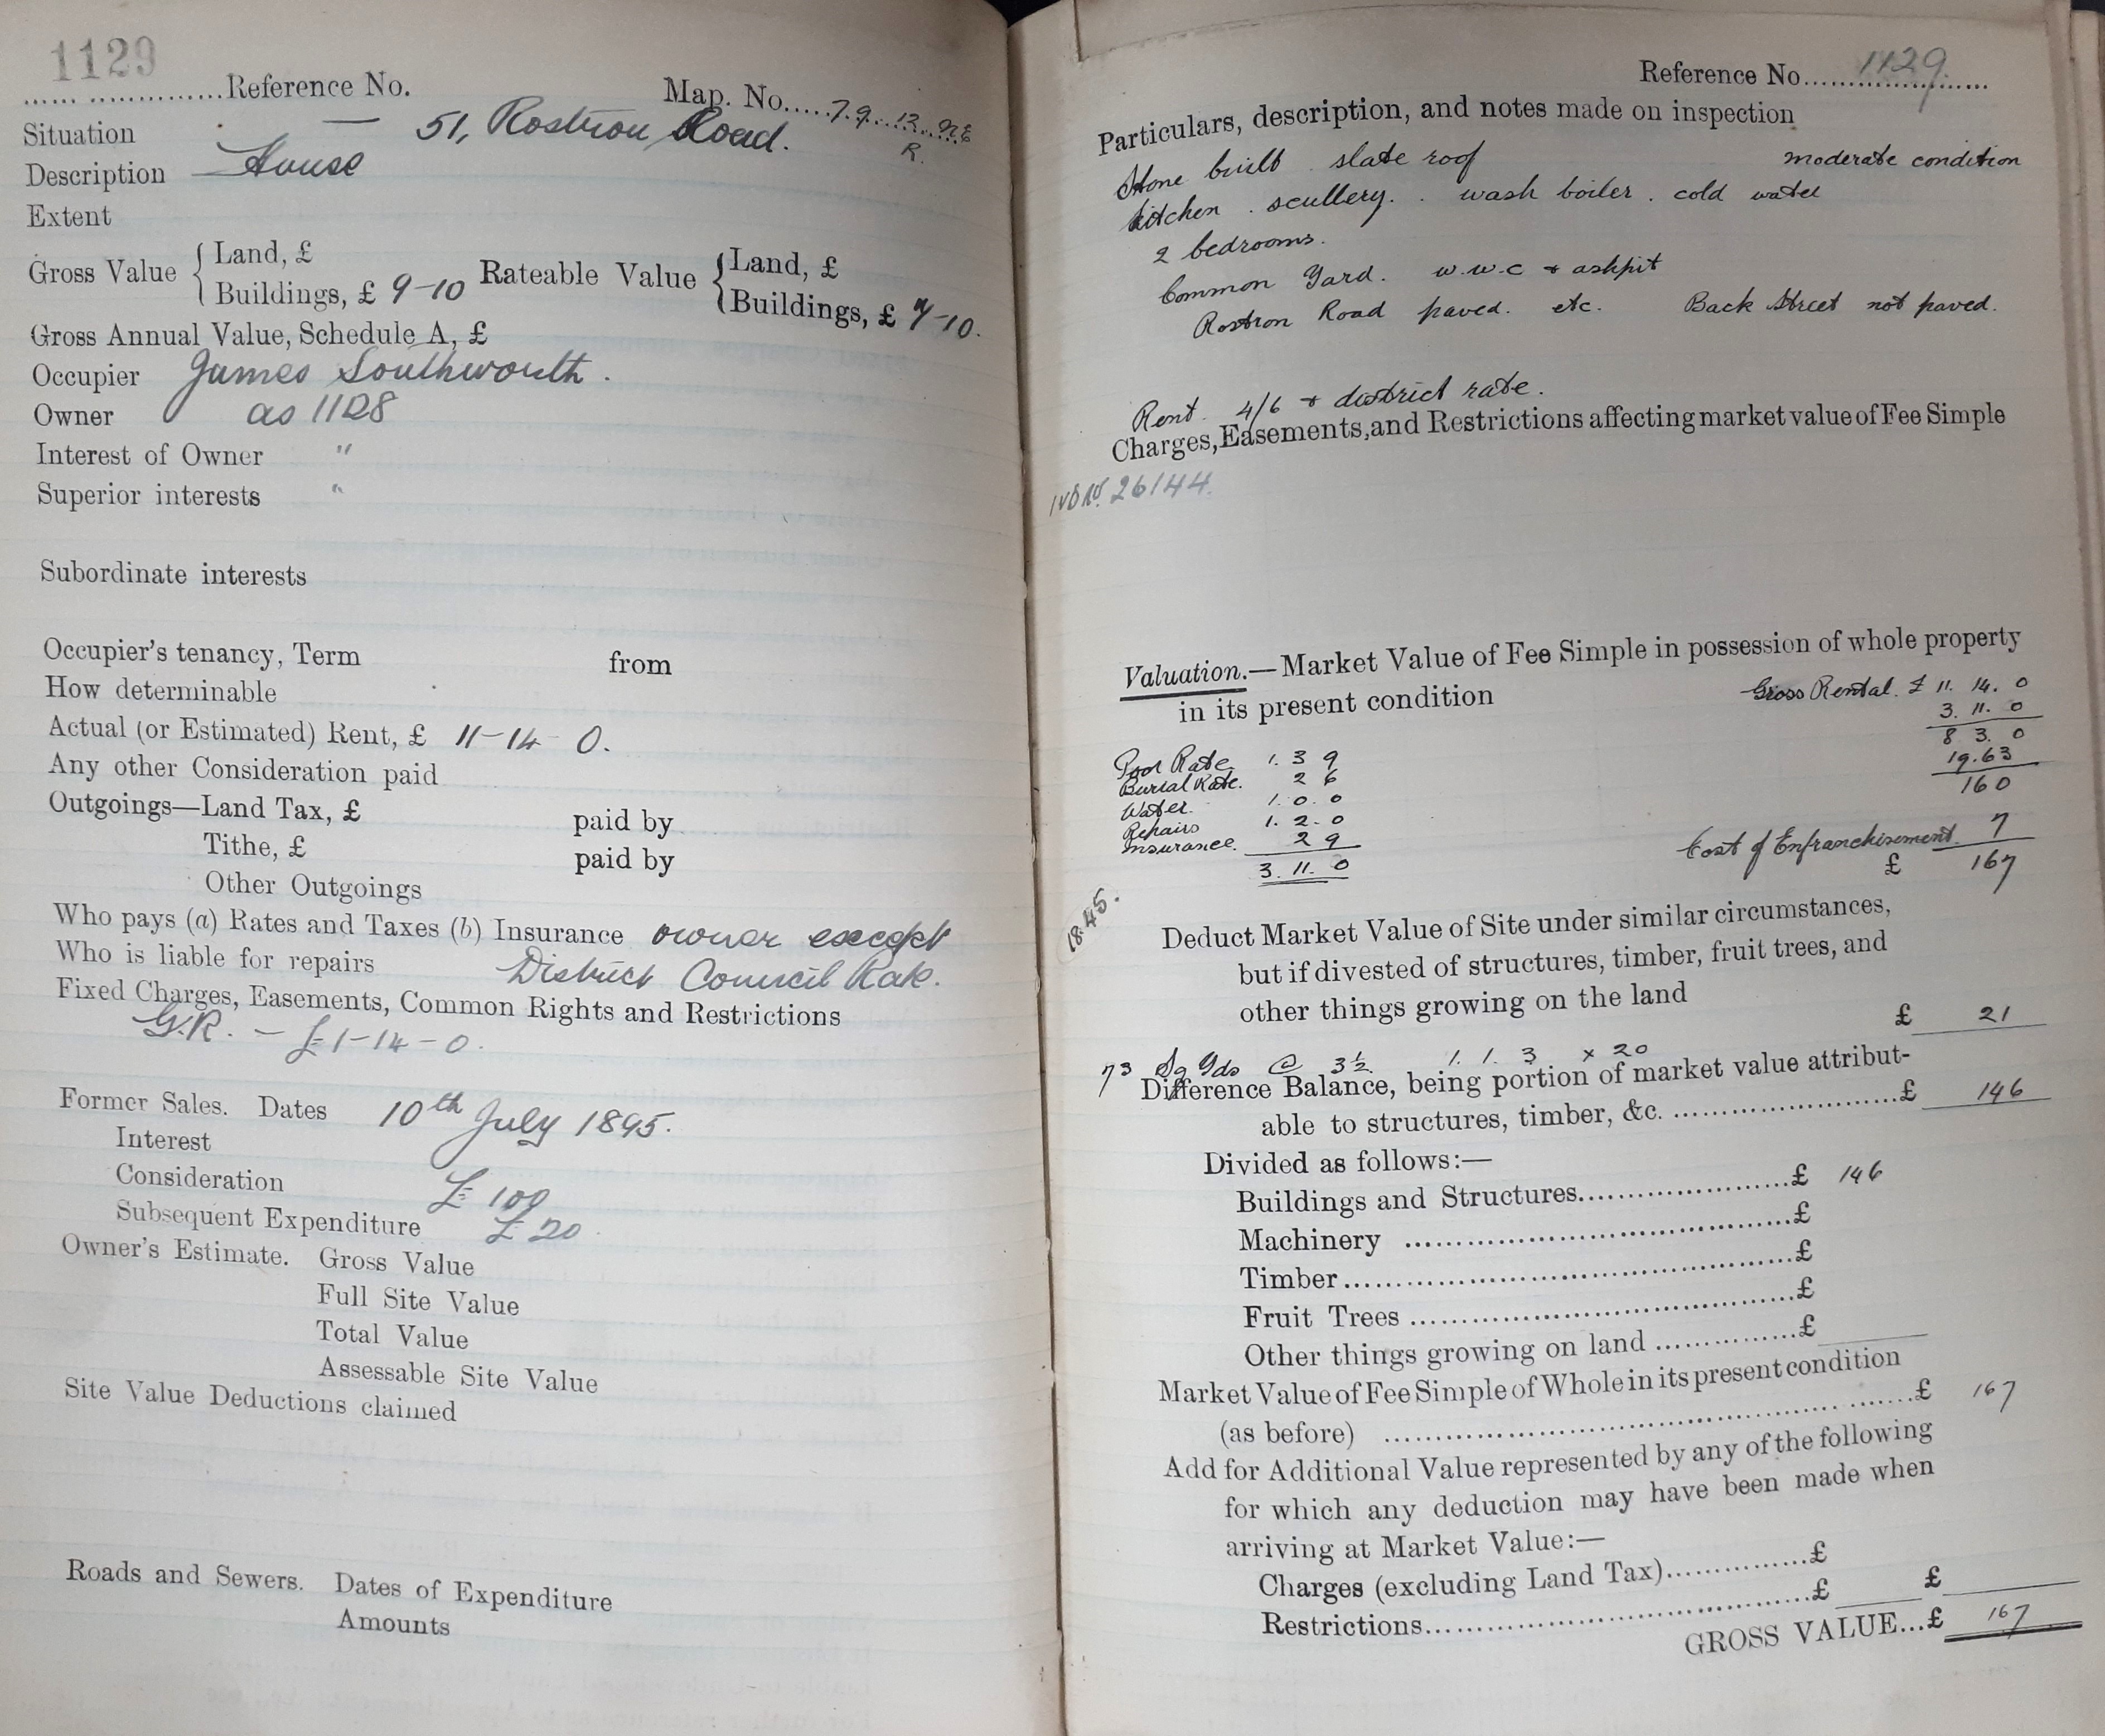 1129
Reference No. Map. No. 79. 12. NE
R.
Situation — 51, Rostron Road.
Description House
Extent
Gross Value { Land, £ Rateable Value { Land, £
Buildings, £ 9-10 Buildings, £ 7-10.
Gross Annual Value, Schedule A, £
Occupier James Southworth.
Owner as 1128
Interest of Owner "
Superior interests "
Subordinate interests
Occupier's tenancy, Term from
How determinable
Actual (or Estimated) Rent, £ 11-14-0.
Any other Consideration paid
Outgoings—Land Tax, £ paid by
Tithe, £ paid by
Other Outgoings
Who pays (a) Rates and Taxes (b) Insurance owner except
Who is liable for repairs District Council Rate.
Fixed Charges, Easements, Common Rights and Restrictions
G.R. — £1-14-0.
Former Sales. Dates 10th July 1895.
Interest
Consideration £100
Subsequent Expenditure £20
Owner's Estimate. Gross Value
Full Site Value
Total Value
Assessable Site Value
Site Value Deductions claimed
Roads and Sewers. Dates of Expenditure
Amounts
Reference No. 1129
Particulars, description, and notes made on inspection
Stone built slate roof moderate condition
kitchen . scullery. . wash boiler . cold water
2 bedrooms.
Common Yard. w.w.c + ashpit
Rostron Road paved. etc. Back Street not paved.
Rent. 4/6 + district rate.
Charges, Easements, and Restrictions affecting market value of Fee Simple
26144.
Valuation.—Market Value of Fee Simple in possession of whole property
in its present condition Gross Rental. £ 11. 14. 0
3. 11. 0
8 3. 0
Poor Rate. 1. 3 9 19.63
Burial Rate. 2 6 160
Water. 1. 0. 0
Repairs 1. 2. 0
Insurance. 2 9 Cost of Enfranchisement 7
3. 11. 0 £ 167
18.45.
Deduct Market Value of Site under similar circumstances,
but if divested of structures, timber, fruit trees, and
other things growing on the land £ 21
73 Sq Yds @ 3½ 1. 1. 3 x 20
Difference Balance, being portion of market value attribut-
able to structures, timber, &c. £ 146
Divided as follows:—
Buildings and Structures £ 146
Machinery £
Timber £
Fruit Trees £
Other things growing on land £
Market Value of Fee Simple of Whole in its present condition
(as before) £ 167
Add for Additional Value represented by any of the following
for which any deduction may have been made when
arriving at Market Value:—
Charges (excluding Land Tax) £
Restrictions £ £
GROSS VALUE...£ 167